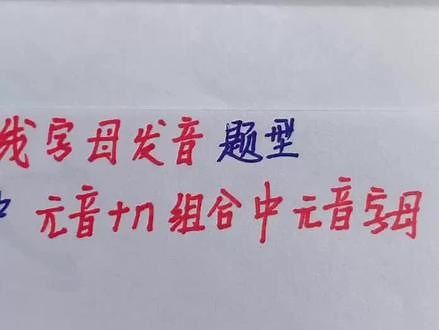 线字母发音 题型
元音+n 组合中元音字母